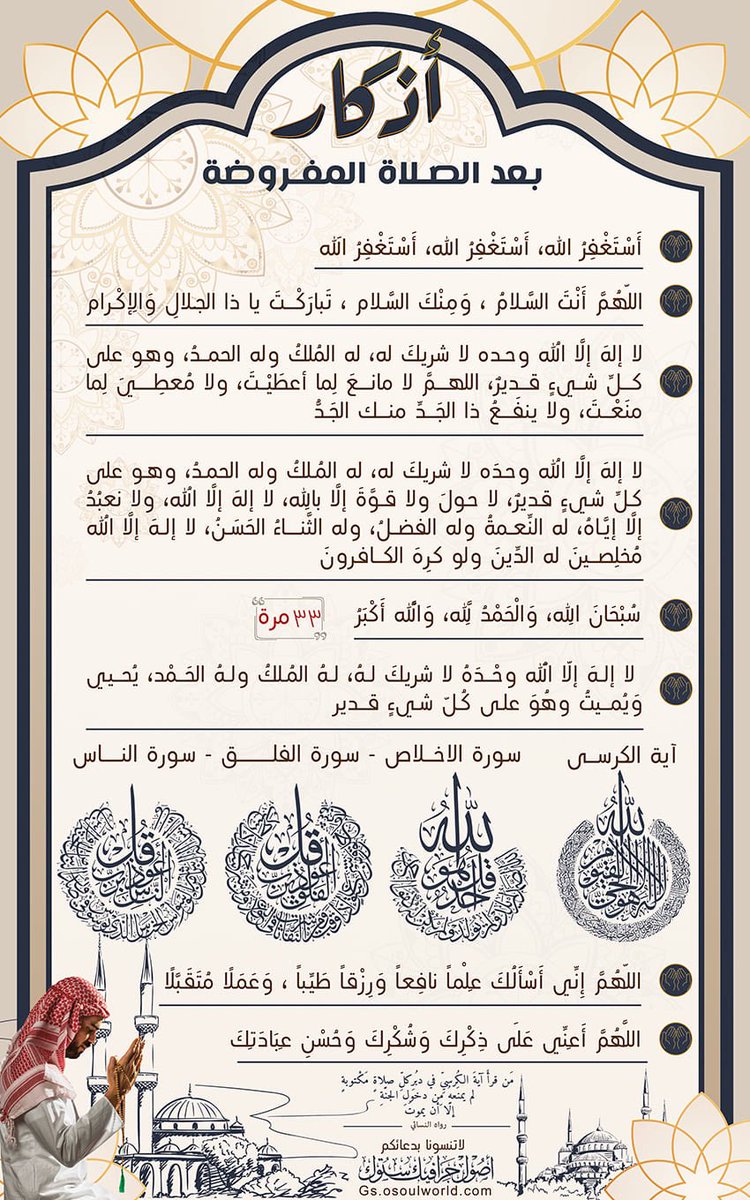 أذكار
بعد الصلاة المفروضة
أَسْتَغْفِرُ الله، أَسْتَغْفِرُ الله، أَسْتَغْفِرُ الله
اللّهُمَّ أَنْتَ السَّلامُ ، وَمِنْكَ السَّلام ، تَبارَكْتَ يا ذا الجلالِ وَالإِكْرام
لا إلهَ إلَّا الله وحده لا شريكَ له، له المُلكُ وله الحمدُ، وهو على
كلِّ شيءٍ قديرٌ، اللهمَّ لا مانعَ لِما أعطَيْتَ، ولا مُعطِيَ لِما
منَعْتَ، ولا ينفَعُ ذا الجَدِّ منك الجَدُّ
لا إلهَ إلَّا الله وحدَه لا شريكَ له، له المُلكُ وله الحمدُ، وهو على
كلِّ شيءٍ قديرٌ، لا حولَ ولا قوَّةَ إلَّا باللهِ، لا إلهَ إلَّا الله، ولا نعبُدُ
إلَّا إيَّاهُ، له النِّعمةُ وله الفضلُ، وله الثَّناءُ الحَسَنُ، لا إلهَ إلَّا الله
مُخلِصينَ له الدِّينَ ولو كرِهَ الكافرونَ
سُبْحَانَ اللهِ، وَالْحَمْدُ لِلَّهِ، وَاللَّه أَكْبَرُ ٣٣ مرة
لا إلهَ إلّا الله وحْدَهُ لا شريكَ لهُ، لهُ المُلكُ ولهُ الحَمْد، يُحيي
وَيُميتُ وهُوَ على كُلّ شيءٍ قدير
آية الكرسى سورة الاخلاص - سورة الفلق - سورة الناس
الله لا إله إلا هو الحي القيوم
قل هو الله أحد
قل أعوذ برب الفلق
قل أعوذ برب الناس
اللّهُمَّ إِنِّي أَسْأَلُكَ عِلْماً نافِعاً وَرِزْقاً طَيِّباً ، وَعَمَلًا مُتَقَبَّلًا
اللَّهُمَّ أَعِنِّي عَلَى ذِكْرِكَ وَشُكْرِكَ وَحُسْنِ عِبَادَتِكَ
مَن قرأ آيةَ الكُرسِيّ في دبرِ كلِّ صلاةٍ مَكْتوبَةٍ
لم يمنعهُ مِن دخولِ الجنَّةِ
إلَّا أن يموتَ
رواه النسائي
لاتنسونا بدعائكم
أصول جرافيك ستوك
Gs.osoulworld.com